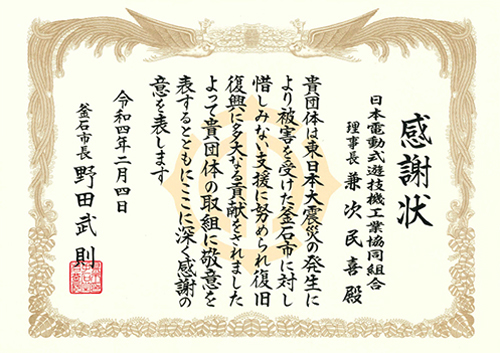 感謝状
日本電動式遊技機工業協同組合
理事長 兼次民喜殿
貴団体は東日本大震災の発生に
より被害を受けた釜石市に対し
惜しみない支援に努められ復旧
復興に多大なる貢献をされました
よって貴団体の取組に敬意を
表するとともにここに深く感謝の
意を表します
令和四年二月四日
釜石市長 野田武則